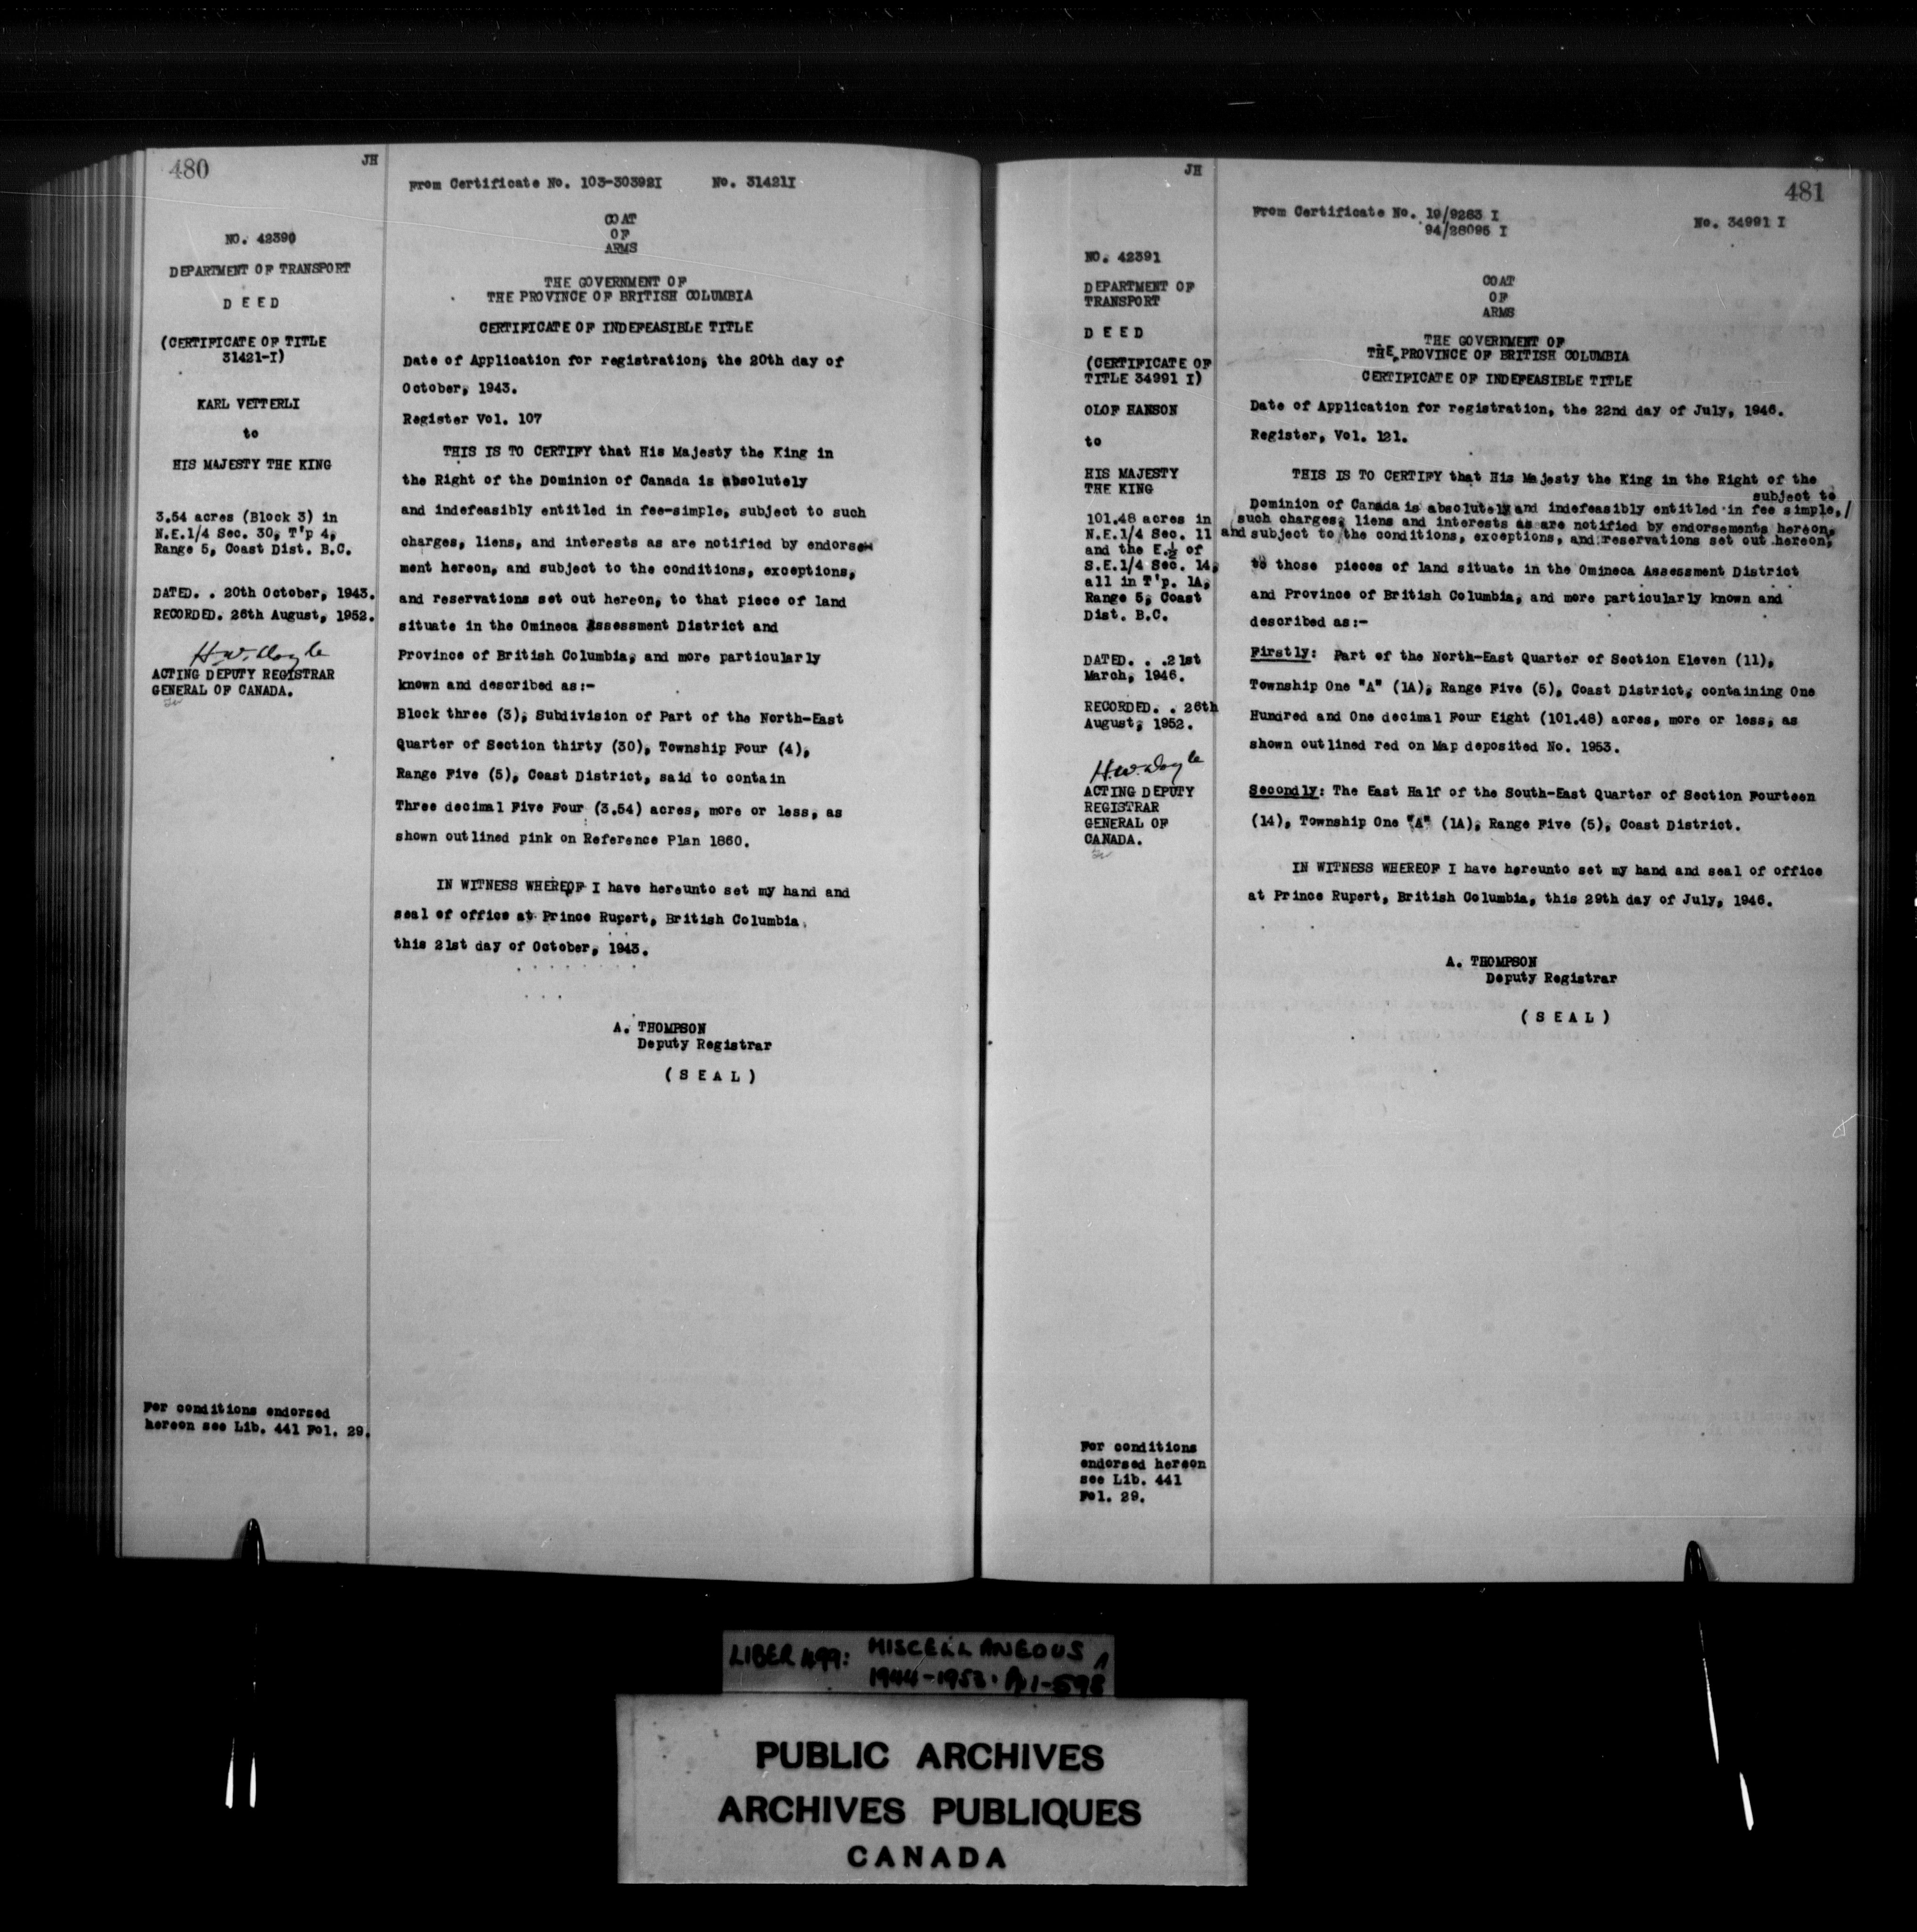 480
JH
NO. 42390
DEPARTMENT OF TRANSPORT
D E E D
(CERTIFICATE OF TITLE
31421-I)
KARL VETTERLI
to
HIS MAJESTY THE KING
3.54 acres (Block 3) in
N.E.1/4 Sec. 30, T'p 4,
Range 5, Coast Dist. B.C.
DATED. . 20th October, 1943.
RECORDED. 26th August, 1952.
H.W. Doyle
ACTING DEPUTY REGISTRAR
GENERAL OF CANADA.
For conditions endorsed
hereon see Lib. 441 Fol. 29.
From Certificate No. 103-30392I No. 31421I
COAT
OF
ARMS
THE GOVERNMENT OF
THE PROVINCE OF BRITISH COLUMBIA
CERTIFICATE OF INDEFEASIBLE TITLE
Date of Application for registration, the 20th day of
October, 1943.
Register Vol. 107
THIS IS TO CERTIFY that His Majesty the King in
the Right of the Dominion of Canada is absolutely
and indefeasibly entitled in fee-simple, subject to such
charges, liens, and interests as are notified by endorse-
ment hereon, and subject to the conditions, exceptions,
and reservations set out hereon, to that piece of land
situate in the Omineca Assessment District and
Province of British Columbia, and more particularly
known and described as:-
Block three (3), Subdivision of Part of the North-East
Quarter of Section thirty (30), Township Four (4),
Range Five (5), Coast District, said to contain
Three decimal Five Four (3.54) acres, more or less, as
shown outlined pink on Reference Plan 1860.
IN WITNESS WHEREOF I have hereunto set my hand and
seal of office at Prince Rupert, British Columbia
this 21st day of October, 1943.
A. THOMPSON
Deputy Registrar
( S E A L )
JH
481
NO. 42391
DEPARTMENT OF
TRANSPORT
D E E D
(CERTIFICATE OF
TITLE 34991 I)
OLOF HANSON
to
HIS MAJESTY
THE KING
101.48 acres in
N.E.1/4 Sec. 11
and the E.½ of
S.E.1/4 Sec. 14,
all in T'p. 1A,
Range 5, Coast
Dist. B.C.
DATED. . .21st
March, 1946.
RECORDED. . 26th
August, 1952.
H.W. Doyle
ACTING DEPUTY
REGISTRAR
GENERAL OF
CANADA.
For conditions
endorsed hereon
see Lib. 441
Fol. 29.
From Certificate No. 19/9283 I No. 34991 I
94/28095 I
COAT
OF
ARMS
THE GOVERNMENT OF
THE PROVINCE OF BRITISH COLUMBIA
CERTIFICATE OF INDEFEASIBLE TITLE
Date of Application for registration, the 22nd day of July, 1946.
Register, Vol. 121.
THIS IS TO CERTIFY that His Majesty the King in the Right of the
subject to
Dominion of Canada is absolutely and indefeasibly entitled in fee simple,/
such charges, liens and interests as are notified by endorsements hereon,
and subject to the conditions, exceptions, and reservations set out hereon,
to those pieces of land situate in the Omineca Assessment District
and Province of British Columbia, and more particularly known and
described as:-
Firstly: Part of the North-East Quarter of Section Eleven (11),
Township One "A" (1A), Range Five (5), Coast District, containing One
Hundred and One decimal Four Eight (101.48) acres, more or less, as
shown outlined red on Map deposited No. 1953.
Secondly: The East Half of the South-East Quarter of Section Fourteen
(14), Township One "A" (1A), Range Five (5), Coast District.
IN WITNESS WHEREOF I have hereunto set my hand and seal of office
at Prince Rupert, British Columbia, this 29th day of July, 1946.
A. THOMPSON
Deputy Registrar
( S E A L )
LIBER 499: MISCELLANEOUS
1944-1953. Pp 1-598
PUBLIC ARCHIVES
ARCHIVES PUBLIQUES
CANADA